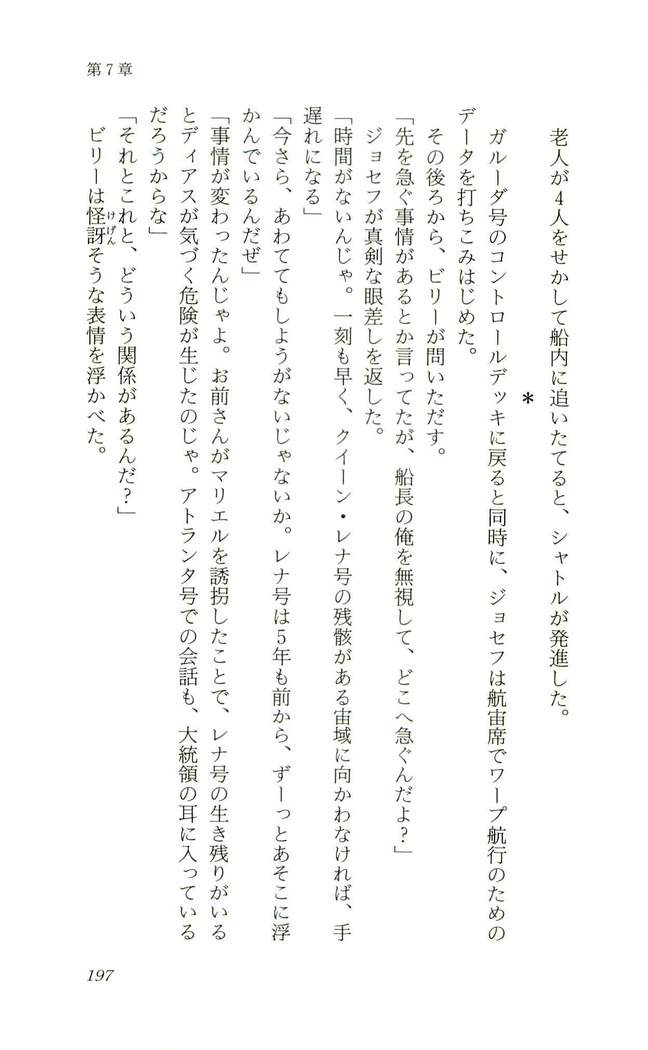 第7章
老人が4人をせかして船内に追いたてると、シャトルが発進した。
*
ガルーダ号のコントロールデッキに戻ると同時に、ジョセフは航宙席でワープ航行のための
データを打ちこみはじめた。
その後ろから、ビリーが問いただす。
「先を急ぐ事情があるとか言ってたが、船長の俺を無視して、どこへ急ぐんだよ?」
ジョセフが真剣な眼差しを返した。
「時間がないんじゃ。一刻も早く、クイーン・レナ号の残骸がある宙域に向かわなければ、手
遅れになる」
「今さら、あわててもしようがないじゃないか。レナ号は5年も前から、ずーっとあそこに浮
かんでいるんだぜ」
「事情が変わったんじゃよ。お前さんがマリエルを誘拐したことで、レナ号の生き残りがいる
とディアスが気づく危険が生じたのじゃ。アトランタ号での会話も、大統領の耳に入っている
だろうからな」
「それとこれと、どういう関係があるんだ?」
ビリーは怪訝そうな表情を浮かべた。
けげん
197